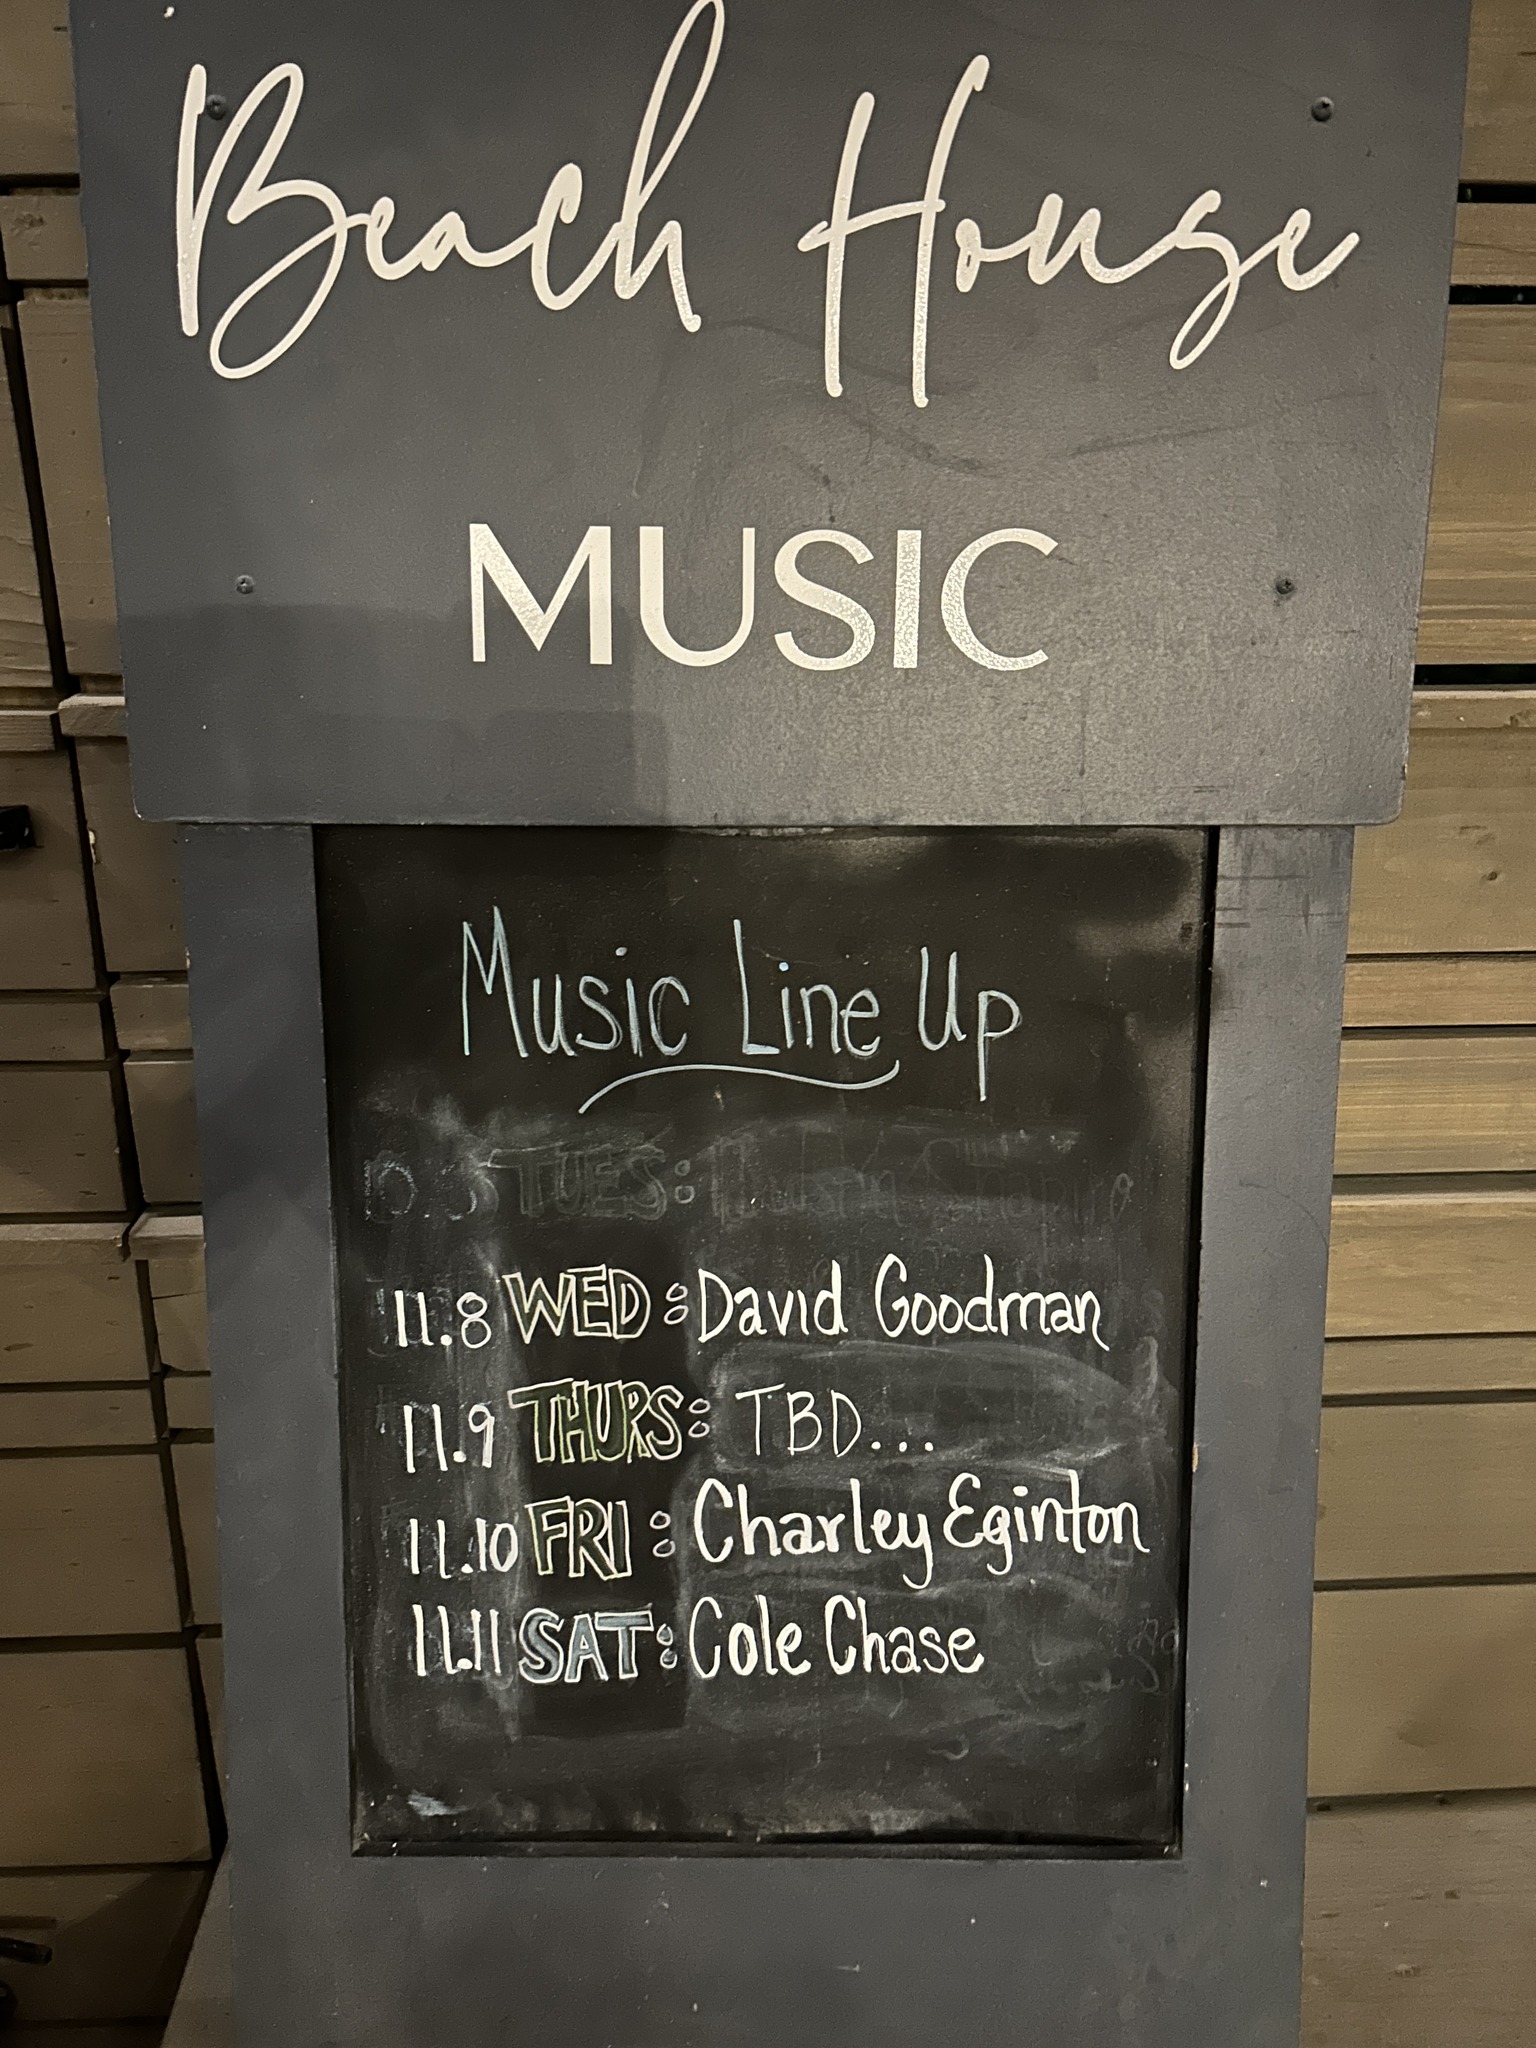 Beach House
MUSIC
Music Line Up
TUES:
11.8 WED: David Goodman
11.9 THURS: TBD...
11.10 FRI: Charley Eginton
11.11 SAT: Cole Chase